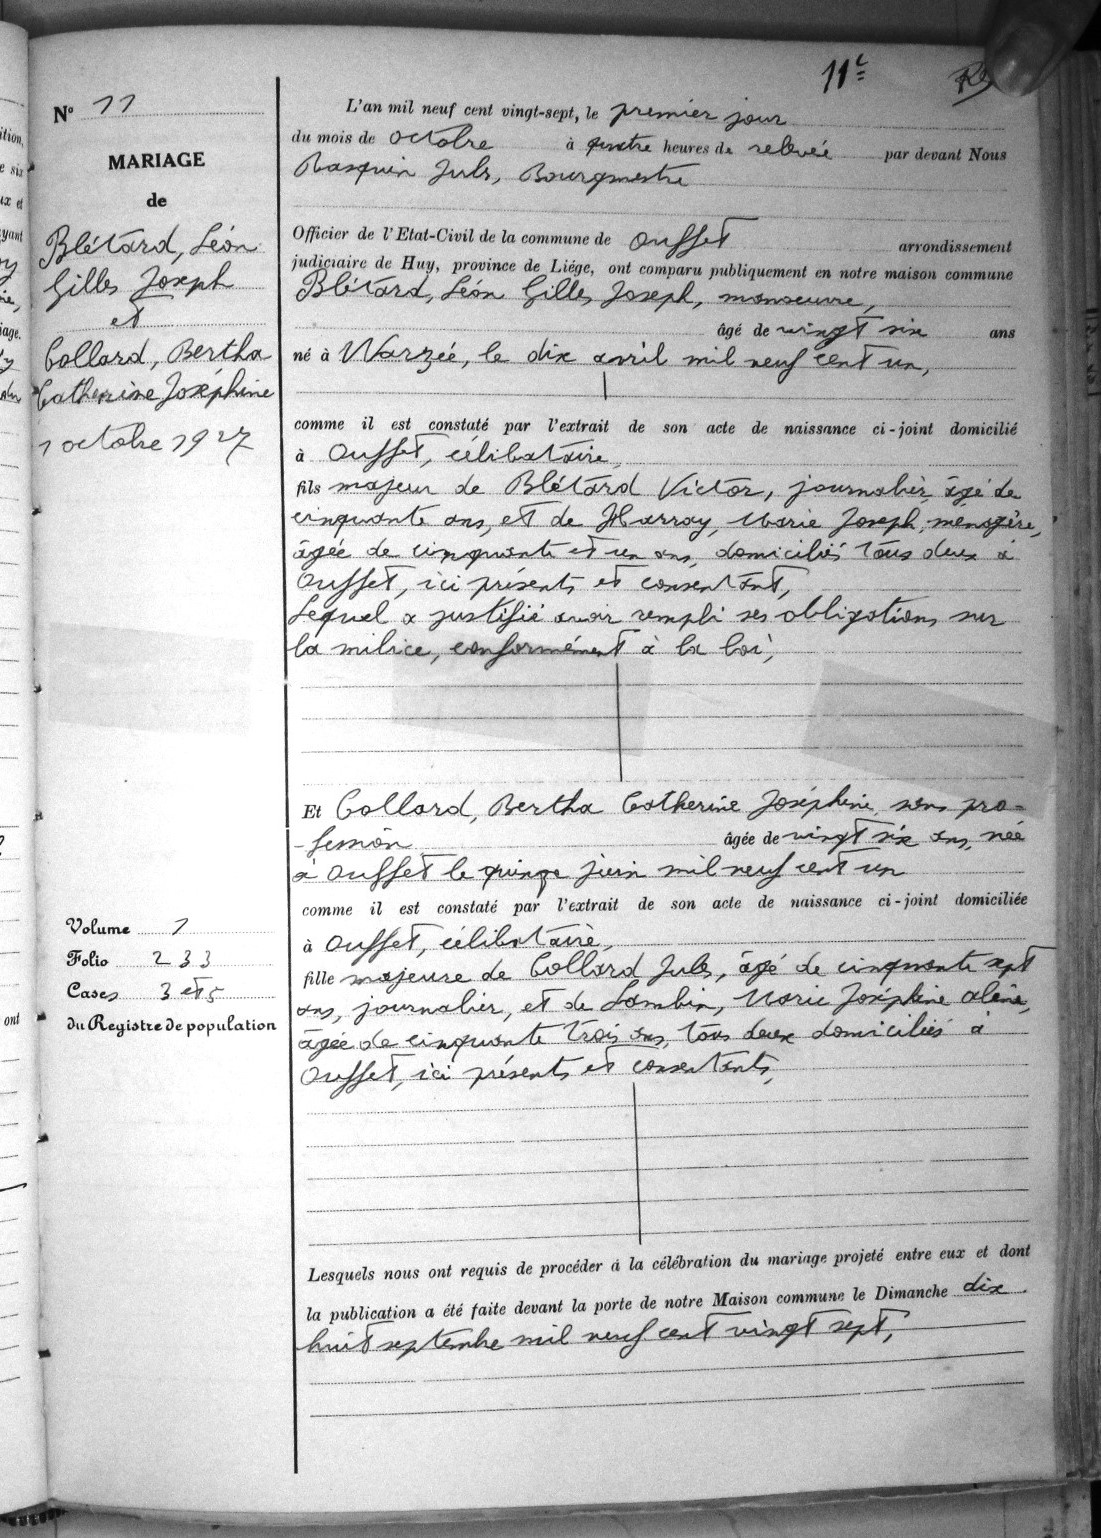 11e
N° 11
MARIAGE
de
Blétard, Léon
Gilles Joseph
et
Collard, Bertha
Catherine Joséphine
1 octobre 1927
Volume 1
Folio 233
Cases 3 et 5
du Registre de population
L'an mil neuf cent vingt-sept, le premier jour
du mois de octobre à quatre heures de relevée par devant Nous
Rasquin Jules, Bourgmestre
Officier de l'Etat-Civil de la commune de Ouffet arrondissement
judiciaire de Huy, province de Liége, ont comparu publiquement en notre maison commune
Blétard, Léon Gilles Joseph, manoeuvre,
âgé de vingt six ans
né à Warzée, le dix avril mil neuf cent un,
comme il est constaté par l'extrait de son acte de naissance ci-joint domicilié
à Ouffet, célibataire,
fils majeur de Blétard Victor, journalier, âgé de
cinquante ans, et de Harray, Marie Joseph, ménagère,
âgée de cinquante et un ans, domiciliés tous deux à
Ouffet, ici présents et consentant,
Lequel a justifié avoir rempli ses obligations sur
la milice, conformément à la loi,
Et Collard, Bertha Catherine Joséphine, sans pro-
-fession âgée de vingt six ans, née
à Ouffet le quinze juin mil neuf cent un
comme il est constaté par l'extrait de son acte de naissance ci-joint domiciliée
à Ouffet, célibataire,
fille majeure de Collard Jules, âgé de cinquante sept
ans, journalier, et de Lambin, Marie Joséphine
âgée de cinquante trois ans, tous deux domiciliés à
Ouffet, ici présents et consentants,
Lesquels nous ont requis de procéder à la célébration du mariage projeté entre eux et dont
la publication a été faite devant la porte de notre Maison commune le Dimanche dix
huit septembre mil neuf cent vingt sept,